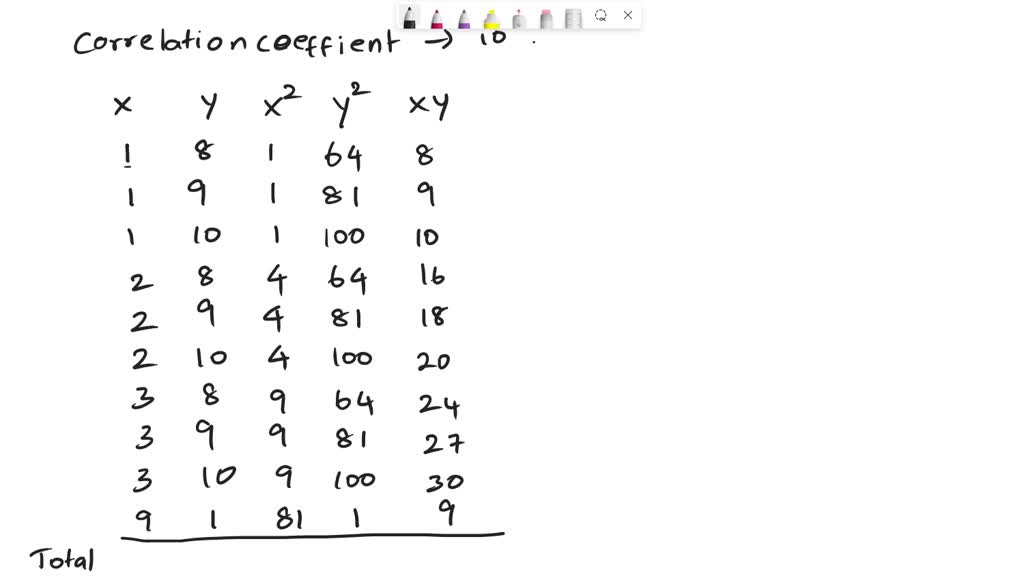 Correlation coeffient → 10
x y x² y² xy
1 8 1 64 8
1 9 1 81 9
1 10 1 100 10
2 8 4 64 16
2 9 4 81 18
2 10 4 100 20
3 8 9 64 24
3 9 9 81 27
3 10 9 100 30
9 1 81 1 9
Total